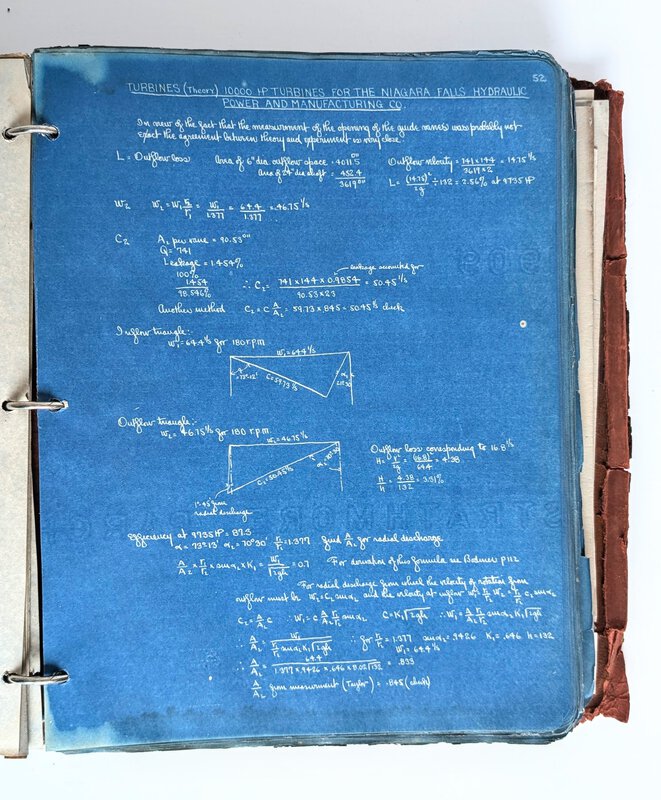 52
TURBINES (Theory) 10000 HP TURBINES FOR THE NIAGARA FALLS HYDRAULIC
POWER AND MANUFACTURING CO.
In view of the fact that the measurment of the opening of the guide vanes was probably not
exact the agreement between theory and experiment is very close.
L = Outflow loss Area of 6" dia outflow space = 4071.5 □" Outflow velocity = 741×144 / 3619×2 = 14.75 '/s
Area of 24" dia shaft = 452.4
3619 □" L = (14.75)² / 2g ÷ 132 = 2.56% at 9735 HP
W₂ W₂ = W₁ r₂/r₁ = W₁/1.377 = 64.4/1.377 = 46.75 '/s
C₂ A₂ per vane = 90.53 □"
Q = 741
Leakage = 1.454%
leakage accounted for
100%
1.454
98.546%
∴ C₂ = 741×144×0.9854 / 90.53×23 = 50.45 '/s
Another method C₂ = C A/A₂ = 59.73×.845 = 50.45 '/s check
Inflow triangle:-
W₁ = 64.4 '/s for 180 r.p.m
W₁ = 64.4 '/s
=73°12'
C = 59.73 '/s
Outflow triangle:-
W₂ = 46.75 '/s for 180 r.p.m
W₂ = 46.75 '/s
C₂ = 50.45 '/s
α₂ = 70°30'
1°45' from
radial discharge
Outflow loss corresponding to 16.8 '/s
H = v²/2g = (16.8)²/64.4 = 4.38
H/h = 4.38/132 = 3.31%
Efficiency at 9735 HP = 87.3
α = 73°13' α₂ = 70°30' r₁/r₂ = 1.377 find A/A₂ for radial discharge
A/A₂ × r₁/r₂ × sin α₂ × K₁ = W₁/√2gh = 0.7 For derivation of this formula see Bodmer p 112
For radial discharge from wheel the velocity of rotation from
outflow must be W₂ = C₂ sin α₂ and the velocity at inflow W₁ = r₁/r₂ W₂ = r₁/r₂ C₂ sin α₂
C₂ = A/A₂ C ∴ W₁ = C A/A₂ r₁/r₂ sin α₂ C = K₁√2gh ∴ W₁ = A/A₂ r₁/r₂ sin α₂ K₁√2gh
∴ A/A₂ = W₁ / r₁/r₂ sin α₂ K₁√2gh ∴ for r₁/r₂ = 1.377 sin α₂ = .9426 K₁ = .646 h = 132
W₁ = 64.4 '/s
∴ A/A₂ = 64.4 / 1.377×.9426×.646×8.02√132 = .833
A/A₂ from measurment (Taylor) = .845 (check)